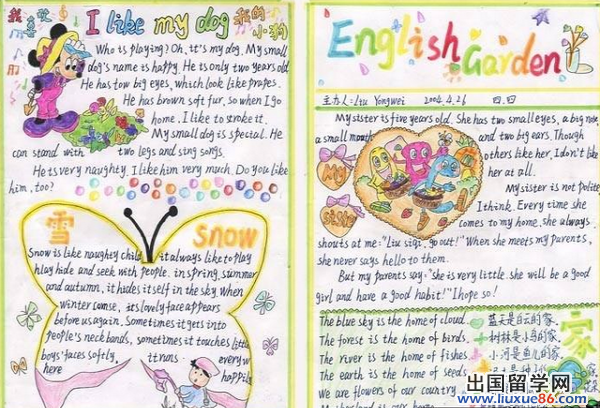 我喜欢 I like my dog 我的小狗
Who is playing? Oh, it's my dog. My small
dog's name is happy. He is only two years old
He has tow big eyes, which look like prapes.
He has brown soft fur, so when I go
home, I like to stroke it.
My small dog is special. He
can stand with two legs and sing songs.
He is very naughty, I like him very much. Do you like
him, too?
雪 Snow
Snow is like naughty child it always like to play
hlay hide and seek with people. in spring, summer
and autumn, it hides itself in the sky. When
winter comse, its lovely face appears
before us again. Sometimes it gets into
people's neck bands, sometimes it touches little
boys' faces softly, it trans every w
here happily
English Garden
主办人:Liu Yongwei 2004.4.26 四.四
My sister is five years old. She has two small eyes, a big nose,
a small mouth and two big ears. Though
others like her, I don't like
her at all.
My sister is not polite,
I think. Every time she
comes to my home, she always
shouts at me: "Liu siqi, go out!" When she meets my parents,
she never says hello to them.
But my parents say: "She is very little. she will be a good
girl and have a good habit!" I hope so!
My
Sister
The blue sky is the home of cloud.
The forest is the home of birds.
The river is the home of fishes.
The earth is the home of seeds.
We are flowers of our country
家
蓝天是白云的家,
树林是小鸟的家,
小河是鱼儿的家,
出国留学网
www.liuxue86.com